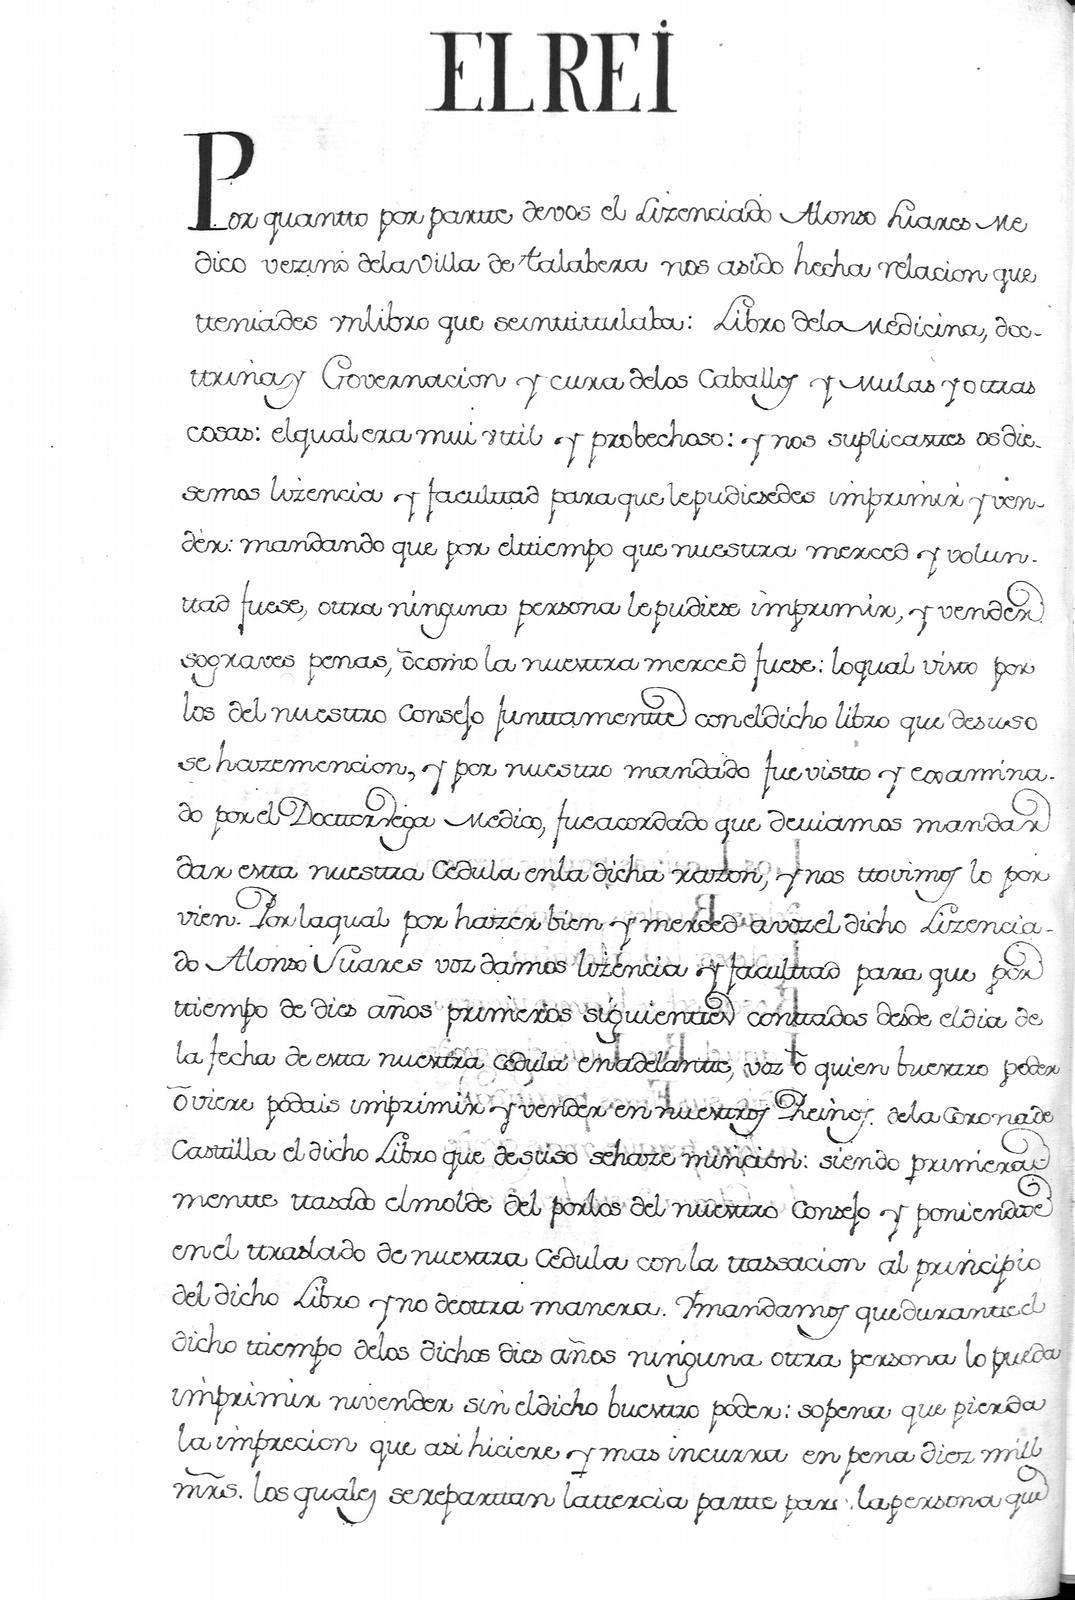 EL REI
Por quantto por partte de vos el Lizenciado Alonso Suares Me
dico vezino dela Villa de talabera nos asido hecha relacion que
tteniades vn libro que seinttittulaba: Libro dela Medicina, doc-
ttrina y Governacion y cura delos Caballos y Mulas y ottras
cosas: elqual era mui vttil y probechoso: y nos suplicasttes os die-
semos lizencia y faculttad para que le pudiesedes imprimir y ven-
der: mandando que por elttiempo que nuesttra merced y volun-
ttad fuese, ottra ninguna persona le pudiese imprimir, y vender
so graves penas, ó como la nuesttra merced fuese: lo qual visto por
los del nuesttro Consejo junttamentte con el dicho libro que desuso
se haze mencion, y por nuesttro mandado fue vistto y examina-
do por el Docttor Vega Medico, fue acordado que deuiamos mandar
dar estta nuesttra Cedula en la dicha razon, y nos ttovimos lo por
vien. Por la qual por hazer bien y merced a voz el dicho Lizencia-
do Alonso Suares voz damos lizencia y faculttad para que por
ttiempo de dies años primeros siguienttes conttados desde el dia de
la fecha de estta nuesttra Cedula en adelantte, voz ó quien buesttro poder
óviere podais imprimir y vender en nuesttros Rheinos. de la Corona de
Casttilla el dicho Libro que desuso sehaze mincion: siendo primera-
mentte ttasado el molde del por los del nuesttro Consejo y poniendose
en el ttraslado de nuesttra Cedula con la ttassacion al principio
del dicho Libro y no de ottra manera. Y mandamos que durantte el
dicho ttiempo delos dichos dies años ninguna ottra persona lo pueda
imprimir ni vender sin el dicho buesttro poder: sopena que pierda
la imprecion que asi hiciere y mas incurra en pena diez mill
mrs. los quales se reparttan la ttercia partte para la persona que